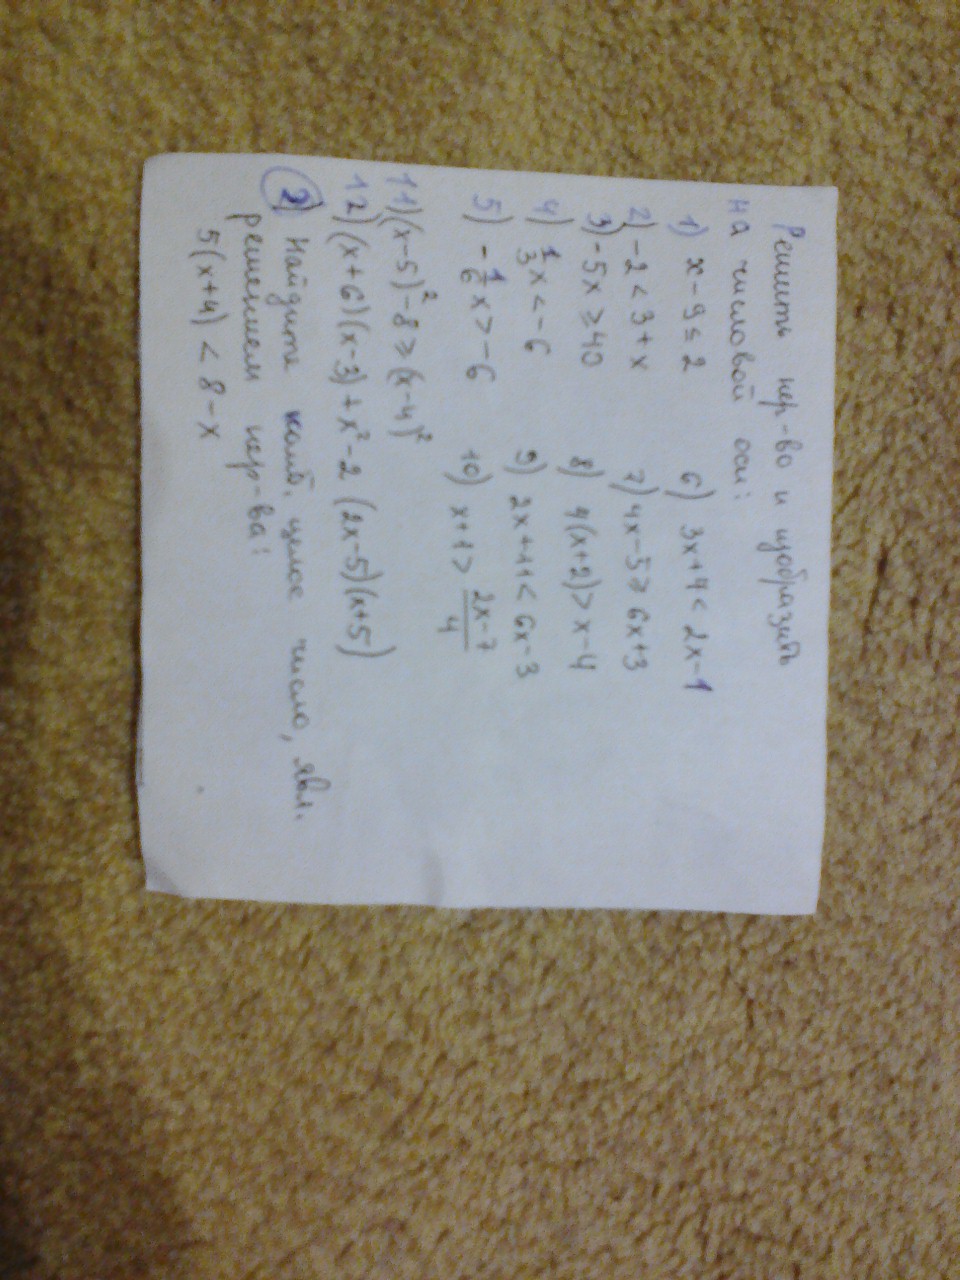 Решить нер-во и изобразить
на числовой оси:
1) x-9≤2
2) -2<3+x
3) -5x≥40
4) 1/3x<-6
5) -1/6x>-6
6) 3x+4<2x-1
7) 4x-5≥6x+3
8) 4(x+2)>x-4
9) 2x+11<6x-3
10) x+1>2x-7/4
11) (x-5)²-8≥(x-4)²
12) (x+6)(x-3)+x²-2(2x-5)(x+5)
2) Найдите наиб. целое число, явл.
решением нер-ва:
5(x+4)<8-x